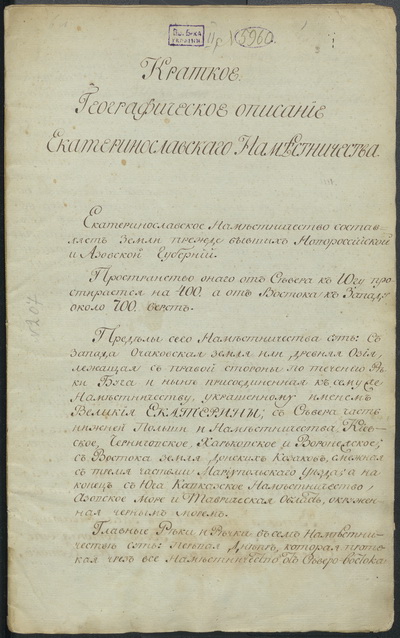 II р. №5960.
Краткое
Географическое описаніе
Екатеринославскаго Намѣстничества.
Екатеринославское Намѣстничество состав-
ляетъ Земли прежде бывшихъ Новороссійской
и Азовской Губерній.
Пространство онаго отъ Сѣвера къ Югу про
стирается на 400. а отъ Востока къ Западу
около 700. верстъ.
Предѣлы сего Намѣстничества суть: Съ
Запада Очаковская земля или древняя Озія,
лежащая съ правой стороны по теченію Рѣ-
ки Буга и нынѣ присоединенная къ сему же
Намѣстничеству, украшенному именемъ
Великія Екатерины; съ Сѣвера часть
нижней Польши и Намѣстничества, Кіев-
ское, Черниговское, Харьковское и Воронежское;
съ Востока земля Донскихъ Козаковъ, смежная
съ тремя частьми Маріупольскаго Уѣзда; а на
конецъ съ Юга Кавказское Намѣстничество,
Азовское море и Таврическая Область, окружен-
ная Чернымъ моремъ.
Главныя Рѣки и Рѣчки въ семъ Намѣстни-
чествѣ суть: Первая Днѣпръ, которая проте
кая чрезъ все Намѣстничество отъ Сѣверо-Востока